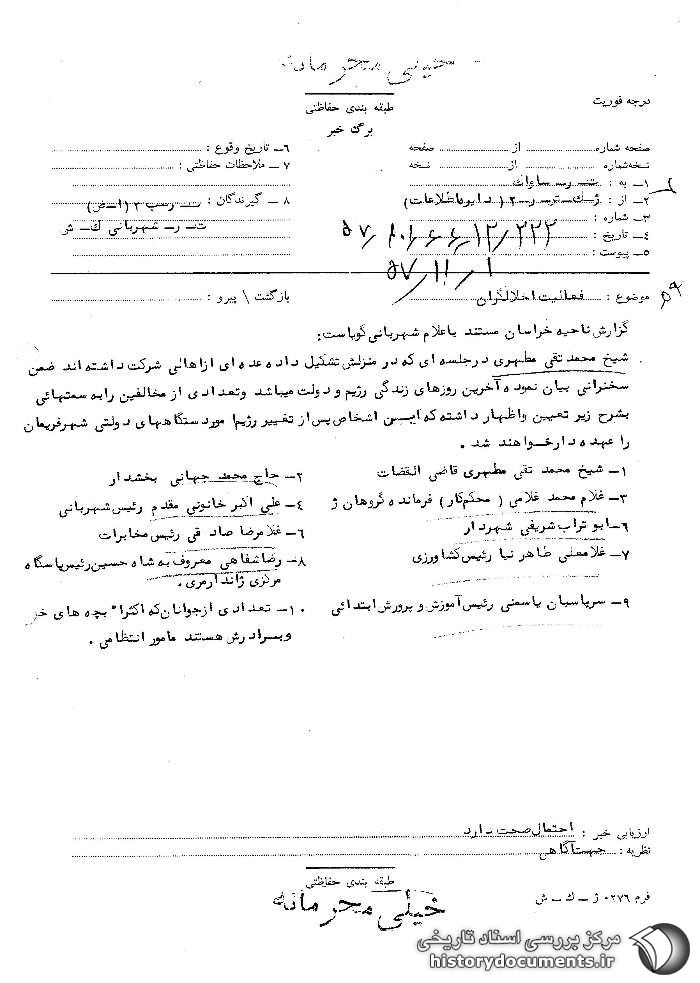 خیلی محرمانه
درجه فوریت
طبقه بندی حفاظتی
برگ خبر
صفحه شماره از صفحه
نسخه شماره از نسخه
۱ـ به : ت ر ساواک
۲ـ از :
۳ـ شماره :
۴ـ تاریخ :
۵ـ پیوست :
۵۷/۱۱/۱
۶ـ تاریخ وقوع :
۷ـ ملاحظات حفاظتی :
۸ـ گیرندگان :
ت ـ ر ـ شهربانی ک ـ ش
موضوع : فعالیت اخلالگران
بازگشت \ پیرو :
گزارش ناحیه خراسان مستند باعلام شهربانی گویاست:
شیخ محمد تقی مطهری درجلسه ای که در منزلش تشکیل داده عده ای ازاهالی شرکت داشته اند ضمن
سخنرانی بیان نموده آخرین روزهای زندگی رژیم و دولت میباشد وتعدادی از مخالفین رابه سمتهائی
بشرح زیر تعیین واظهار داشته که ایـن اشخاص پس از تغییر رژیم امور دستگاههای دولتی شهرفریمان
را عهده دارخواهند شد .
۱ـ شیخ محمد تقی مطهری قاضی القضات
۲ـ حاج محمد جهانی بخشدار
۳ـ غلام محمد غلامی ( محکم کار) فرمانده گروهان ژ
۴ـ علی اکبر خاتونی مقدم رئیس شهربانی
۶ـ ابو تراب شریفی شهردار
۶ـ غلامرضا صادقی رئیس مخابرات
۷ـ غلامعلی طاهر نیا رئیس کشاورزی
۸ـ رضا شفاهی معروف به شاه حسین رئیس پاسگاه
مرکزی ژاندارمری .
۹ـ سرپاسبان یاسمنی رئیس آموزش و پرورش ابتدائی
۱۰ـ تعدادی ازجوانان که اکثرا" بچه های خو
وبرادرش هستند مامور انتظامی .
ارزیابی خبر : احتمال صحت دارد
نظریه : جهت آگاهی
طبقه بندی حفاظتی
فرم ۰۲۷۶ ژ ـ ک ـ ش
خیلی محرمانه
مرکز بررسی اسناد تاریخی
historydocuments.ir